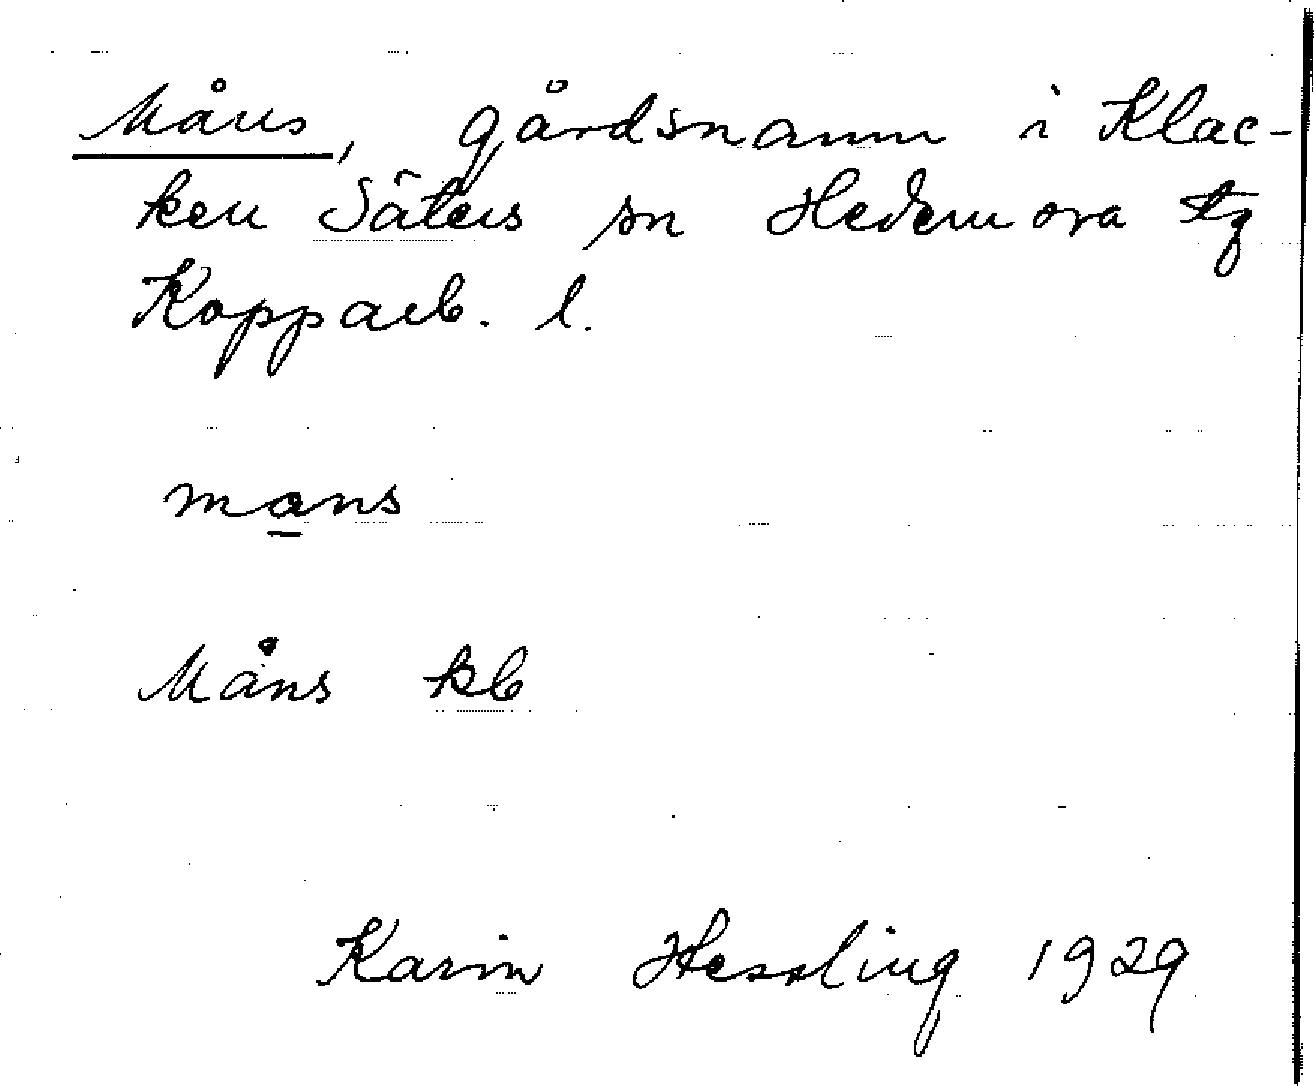 Måns, gårdsnamn i Klac-
ken Säters sn Hedemora tg
Kopparb. l.
mans
Måns kb
Karin Hessling 1929